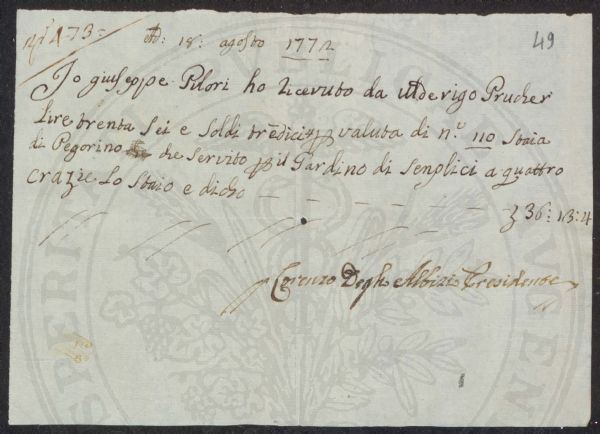 N° 173=
49
Ad: 18: agosto 1772
Io giuseppe Pilori ho ricevuto da Alderigo Prucher
Lire trenta sei e soldi tredici pp valuta di n.° 110 staia
di Pegorino che servito pp il Gardino di senplici a quattro
crazie Lo staio e dicho — — — — — — —
36: 13: 4
Lorenzo Degli Albizi Presidente